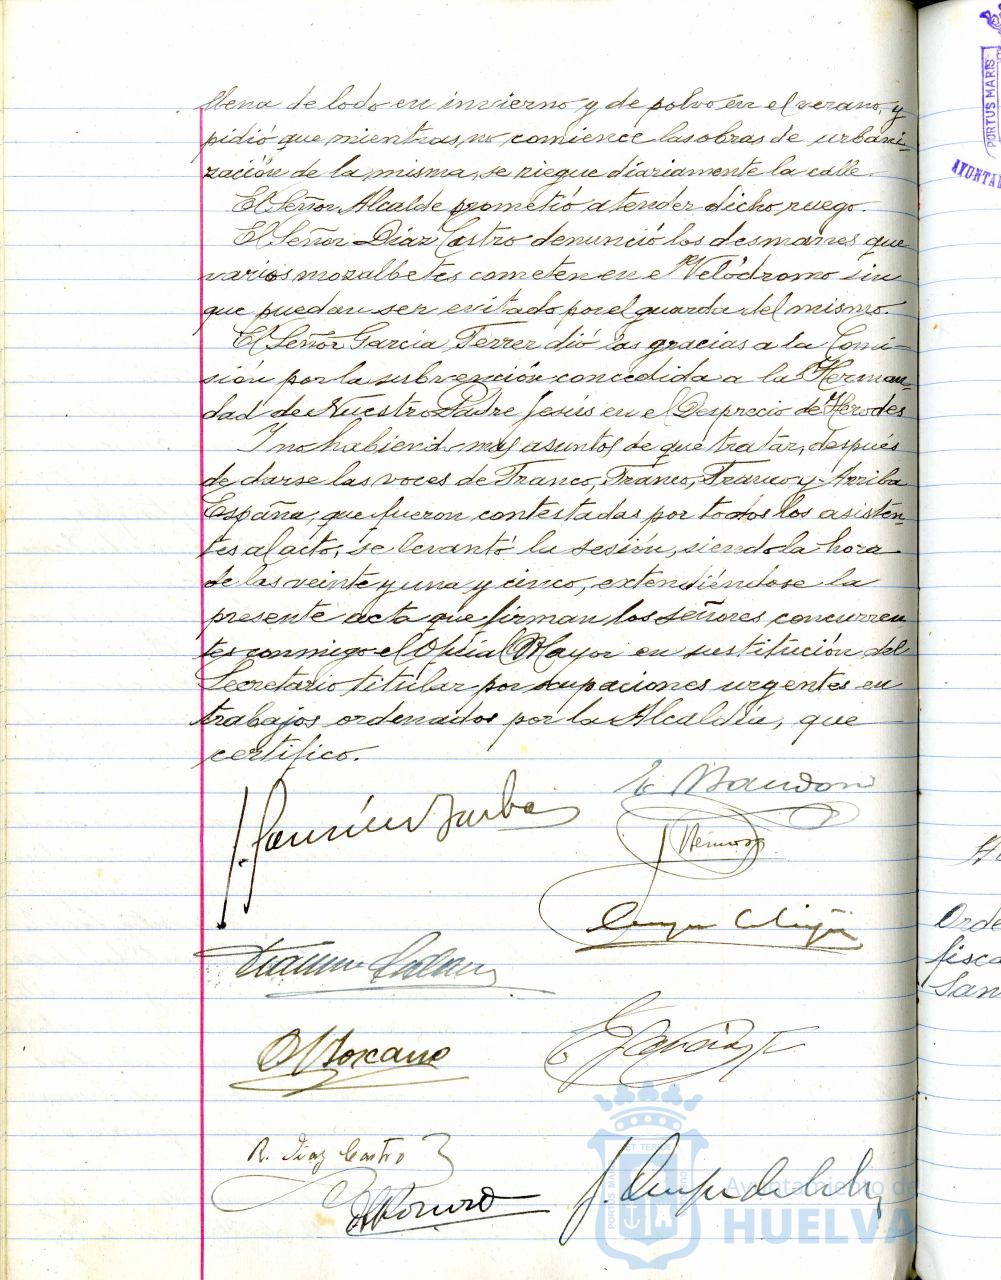 llena de lodo en invierno y de polvo en el verano, y
pidió que mientras no comience las obras de urbani-
zación de la misma, se riegue diariamente la calle.
El Señor Alcalde prometió atender dicho ruego.
El Señor Díaz Castro denunció los desmanes que
varios mozalbetes cometen en el Velódromo sin
que puedan ser evitado por el guarda del mismo.
El Señor García Ferrer dió las gracias a la Comi-
sión por la subvención concedida a la Herman-
dad de Nuestro Padre Jesús en el Desprecio de Herodes
Y no habiendo más asuntos de que tratar, después
de darse las voces de Franco, Franco, Franco y Arriba
España, que fueron contestadas por todos los asisten-
tes al acto, se levantó la sesión, siendo la hora
de las veinte y una y cinco, extendiéndose la
presente acta que firman los señores concurren
tes conmigo el Oficial Mayor en sustitución del
Secretario titular por ocupaciones urgentes en
trabajos ordenados por la Alcaldía, que
certifico.
R. Díaz Castro
Ayuntamiento de
HUELVA
PORTUS MARIS
AYUNTA
Orde
fisca
San